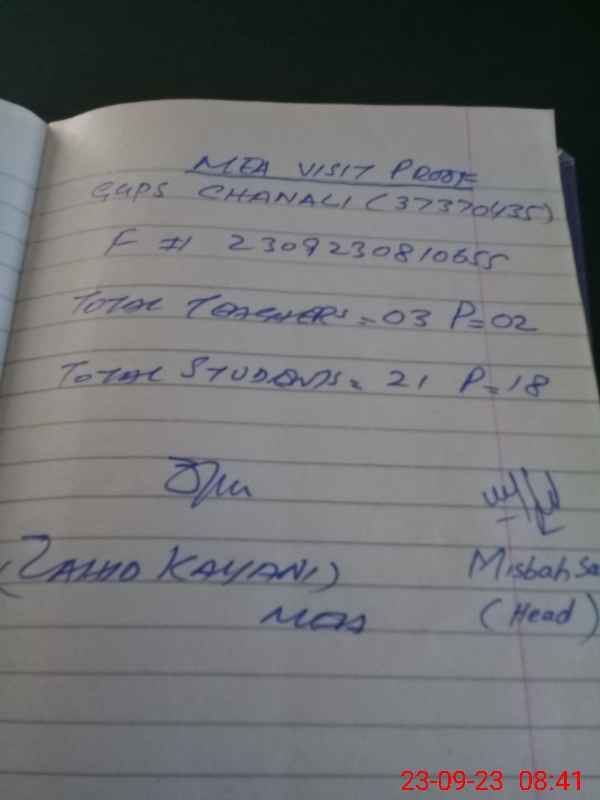 MEA VISIT PROOF
GGPS CHANALI (37370435)
F # 2309230810655
TOTAL TEACHERS = 03 P=02
TOTAL STUDENTS = 21 P=18
(ZAHID KAYANI) Misbah Sa
MEA (Head)
23-09-23 08:41